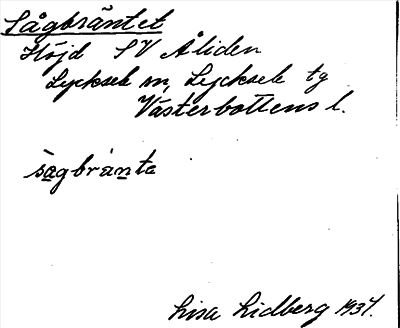 Sågbräntet
Höjd SV Åliden
Lycksele sn, Lycksele tg
Västerbottens l.
sagbränta
Lisa Lidberg 1937.